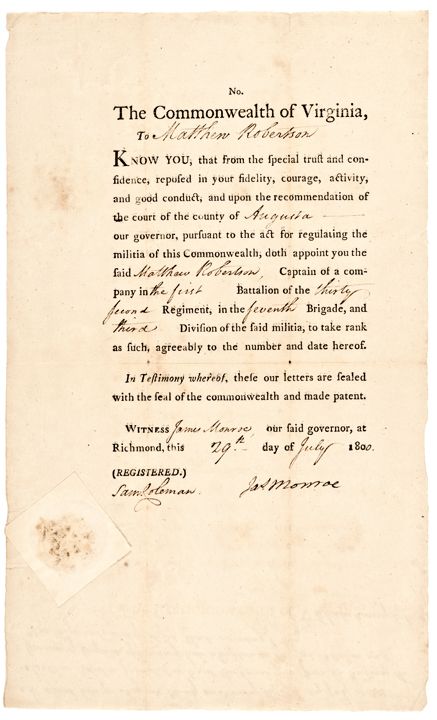 No.
The Commonwealth of Virginia,
To Matthew Robertson
KNOW YOU, that from the special trust and con-
fidence, reposed in your fidelity, courage, activity,
and good conduct, and upon the recommendation of
the court of the county of Augusta
our governor, pursuant to the act for regulating the
militia of this Commonwealth, doth appoint you the
said Matthew Robertson, Captain of a com-
pany in the first Battalion of the thirty
second Regiment, in the seventh Brigade, and
third Division of the said militia, to take rank
as such, agreeably to the number and date hereof.
In Testimony whereof, these our letters are sealed
with the seal of the commonwealth and made patent.
WITNESS James Monroe our said governor, at
Richmond, this 29th day of July 1800.
(REGISTERED.)
Sam Coleman. Jas Monroe